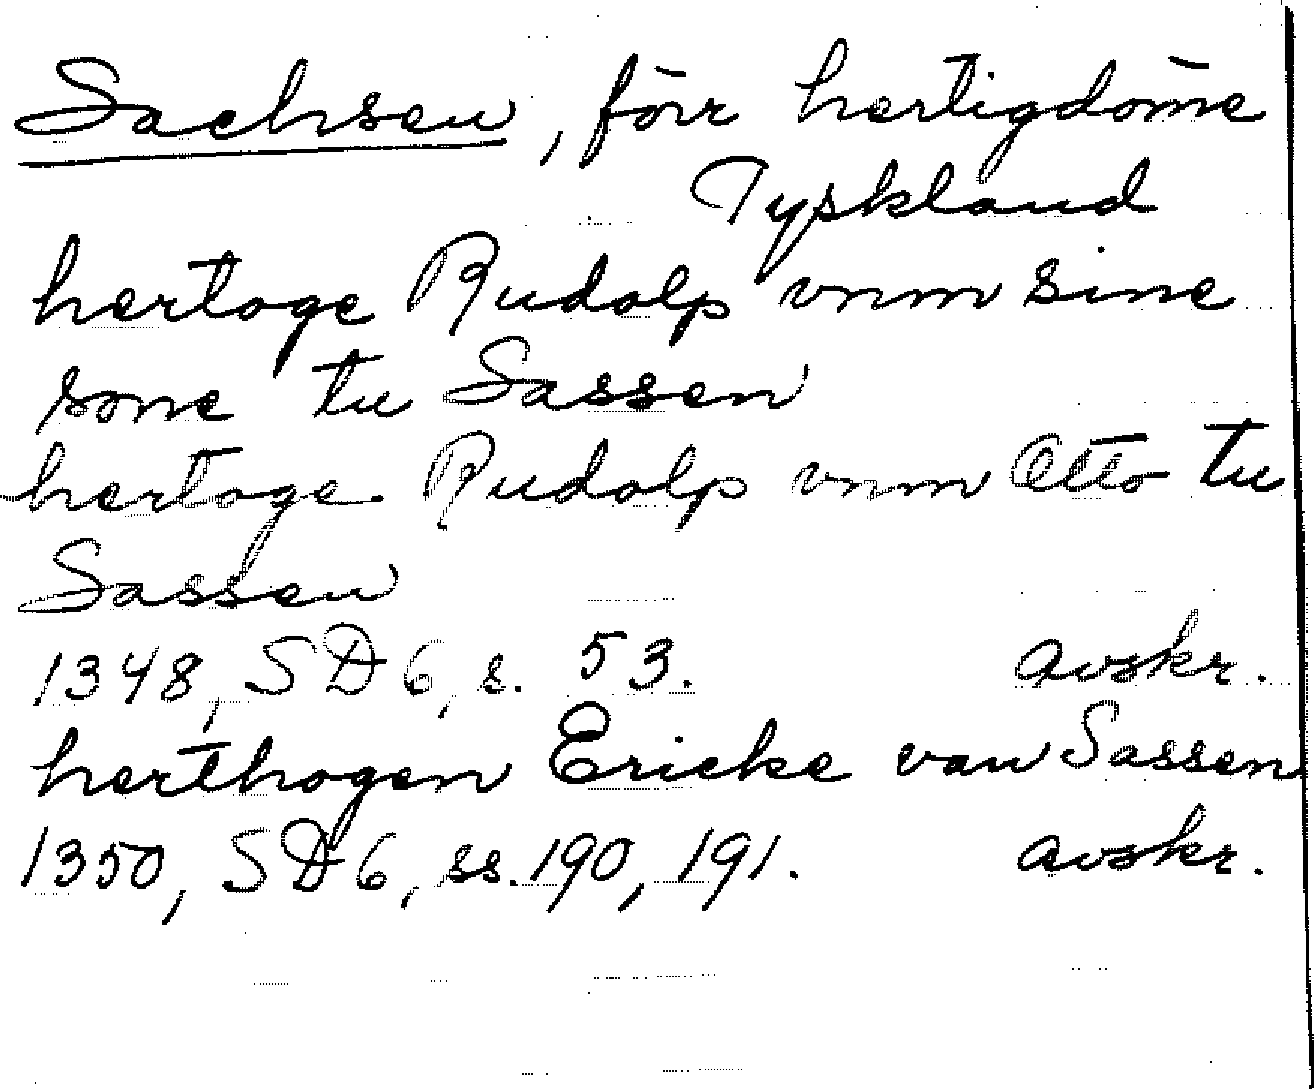 Sachsen, förr hertigdöme
Tyskland
hertoge Rudolp vnm sine
sone tu Sassen
hertoge Rudolp vnm Otto tu
Sassen
1348, SD 6, s. 53. avskr.
herthogen Ericke van Sassen
1350, SD 6, ss. 190, 191. avskr.